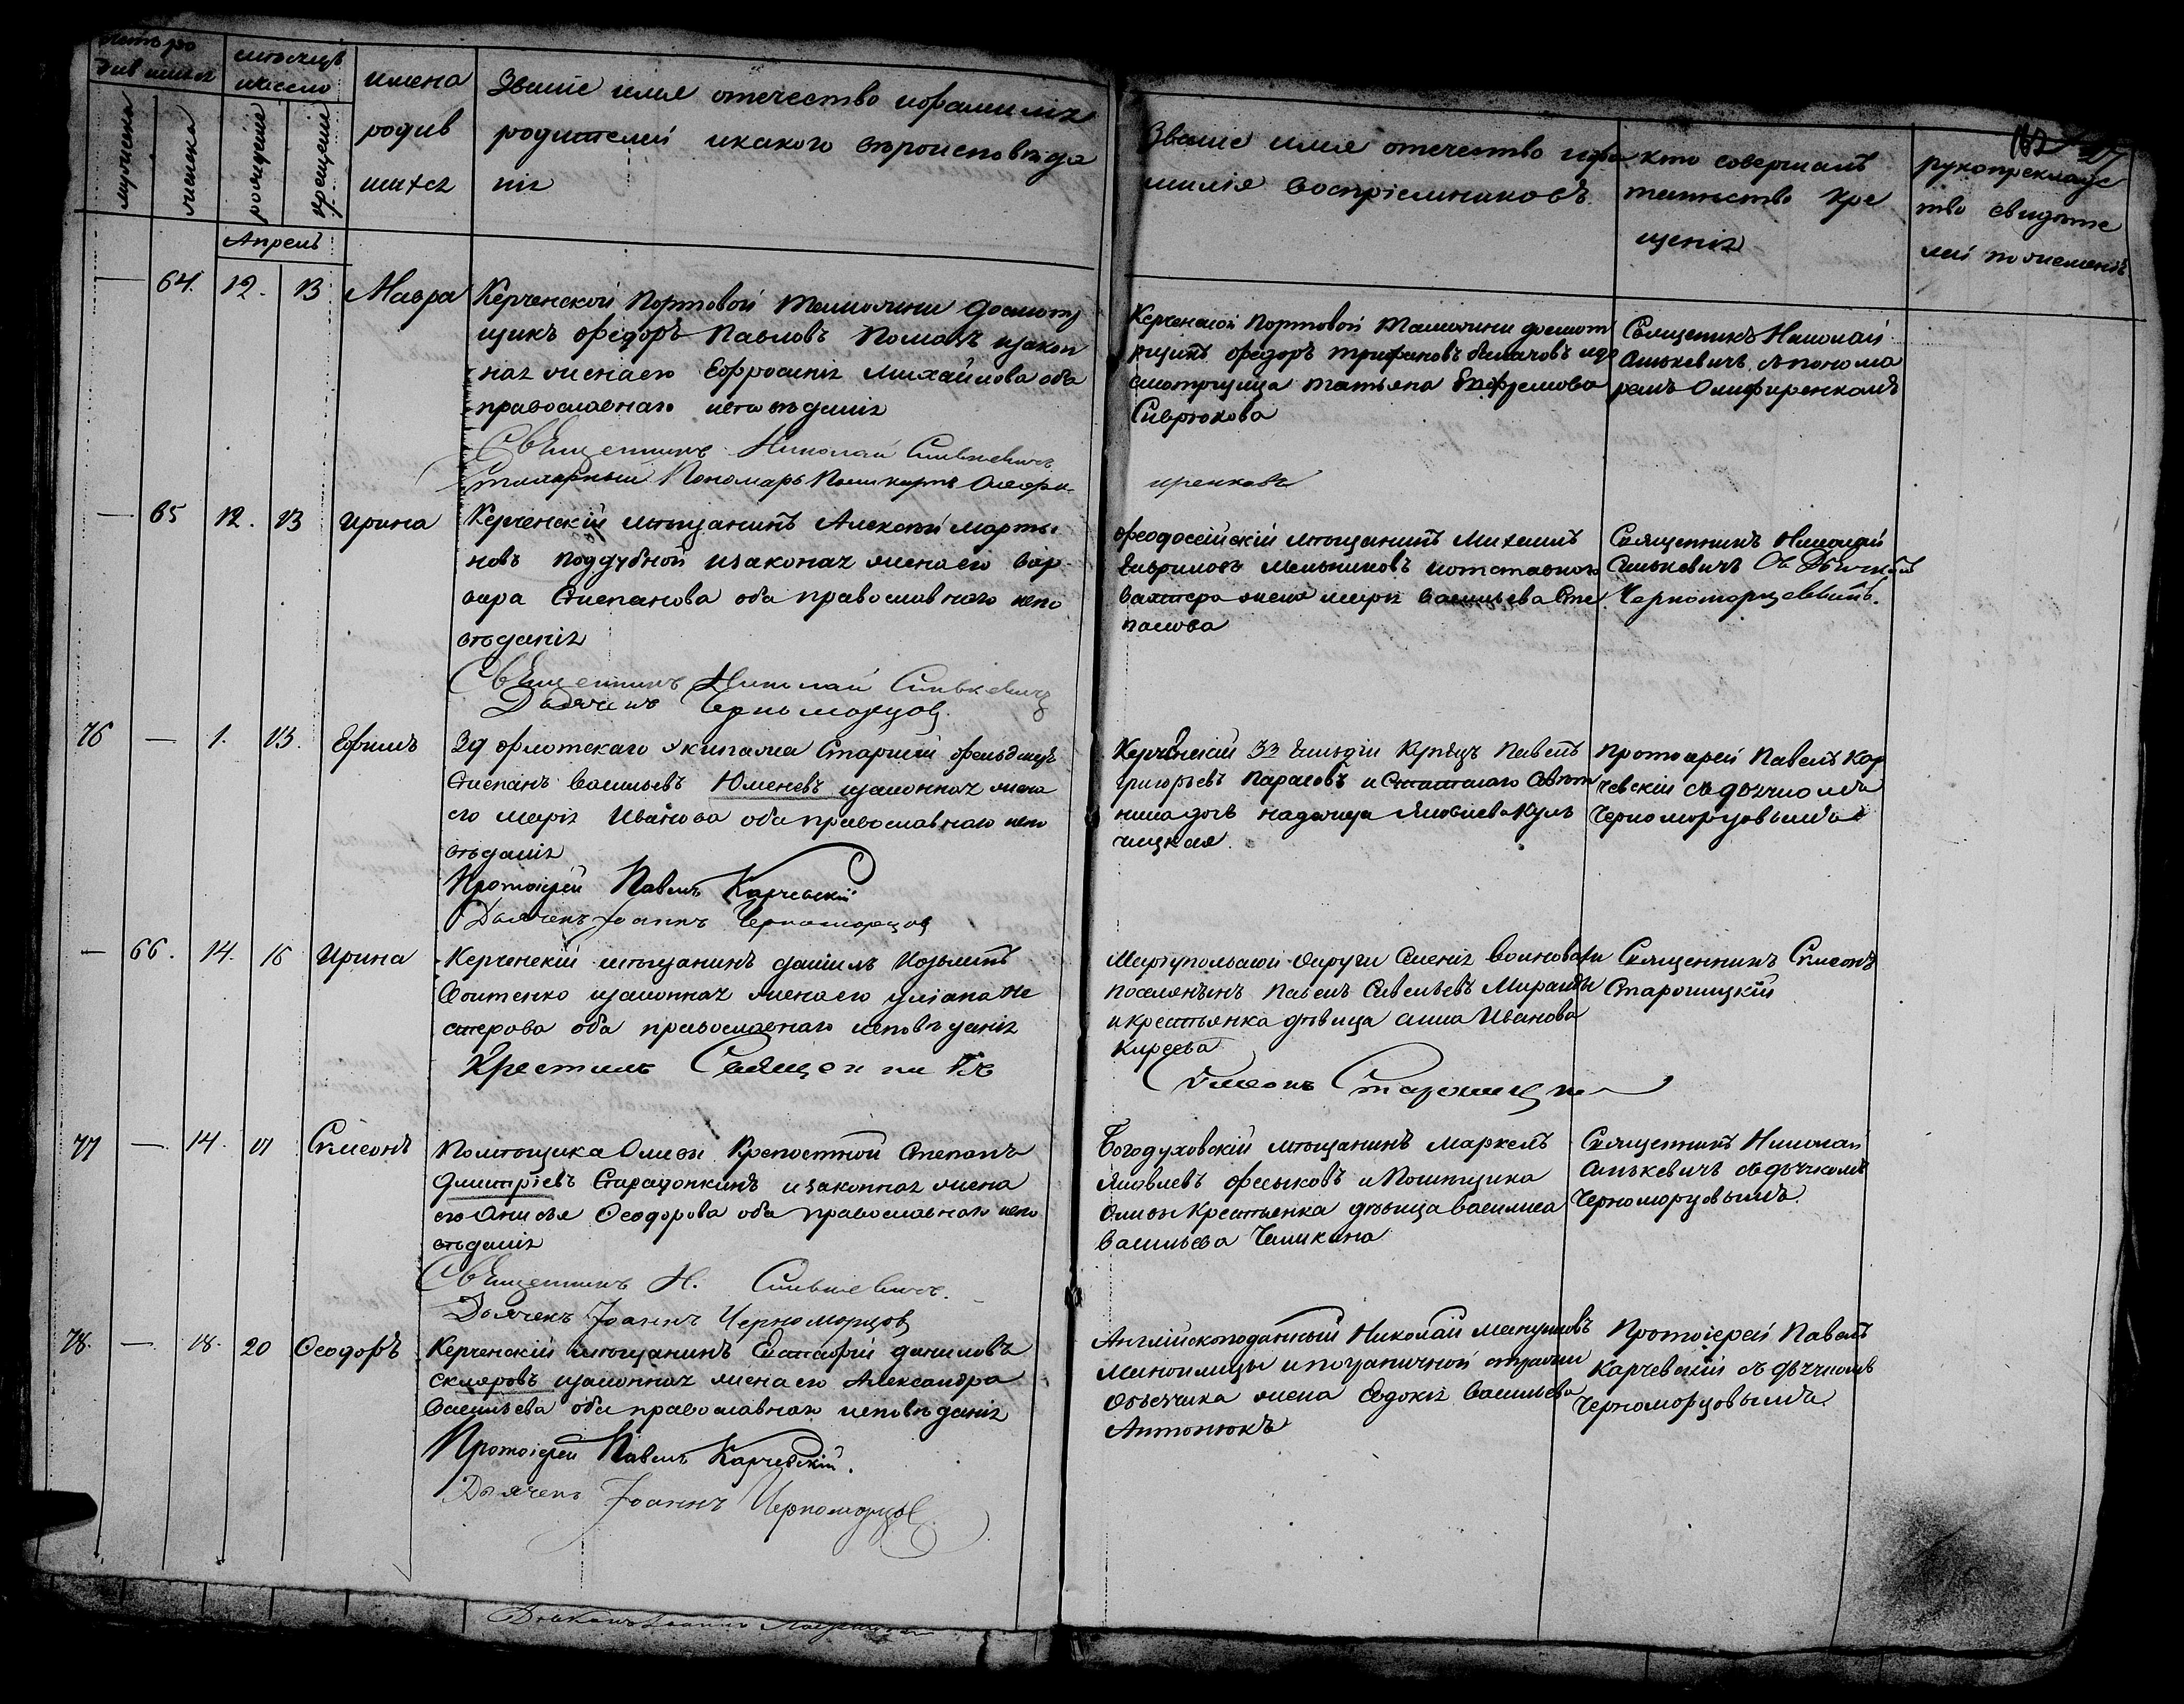 Счетъ ро
дившихся
мѣсяцъ
и число
имена
родив
шихся
Званіе имя отечество и фамилія
родителей и какого вѣроисповѣда
нія
Званіе имя отечество и фа
милія воспріемниковъ
кто совершалъ
таинство кре
щенія
рукоприкладс
тво свидѣте
лей по желанію
мужеска
женска
рожденіе
крещеніе
Апрель
— 64. 12. 13 Мавра
Керченской Портовой Таможни досмотр
щикъ Федоръ Павловъ и закон
ная жена его Ефросинія Михайлова оба
православнаго исповѣданія
Священникъ Николай Синькевичъ
Пономарь
Керченской Портовой Таможни досмотр
щикъ Федоръ Трифоновъ и до
смотрщица Татьяна Ефремова
Сиврюкова
Священникъ Николай
Синькевичъ съ понома
ремъ Олиференкомъ
— 65 12. 13 Ирина
Керченскій мѣщанинъ Алексѣй Марты
новъ Поддубной и законая жена его Вар
вара Степанова оба православнаго испо
вѣданія
Священникъ Николай Синькевичъ
Дьячекъ Черноморцовъ
Феодосійскій мѣщанинъ Михаилъ
Гавриловъ Мельниковъ и отставного
вахтера жена Марія Васильева Сте
панова
Священникъ Николай
Синькевичъ Съ Дьячкомъ
Черноморцевымъ.
76 — 1. 13. Ефимъ
39 флотскаго Экипажа Старшій фельдшеръ
Степанъ Васильевъ Юменевъ и законная жена
его Марія Иванова оба православнаго испо
вѣданія
Протоіерей Павелъ Карчевскій
Дьячекъ Іоаннъ Черноморцов
Керченскій 3й Гильдіи Купецъ Павелъ
Григорьевъ Параловъ и Статскаго Совѣт
ника дочь Надежда Яковлева Куль
чицкая
Протоіерей Павелъ Кар
чевскій съ дьячкомъ
Черноморцовымъ
— 66. 14. 16 Ирина
Керченскій мѣщанинъ Даніилъ Козьминъ
Войтенко и законная жена его Уліана Не
стерова оба православнаго исповѣданія
Крестилъ Священникъ
Маріупольской округи Селенія
поселянинъ Павелъ Савельевъ
и крестьянка дѣвица Анна Иванова
Киреева
Симеонъ Старошицкій
Священникъ Симеонъ
Старошицкій
77 — 14. 17 Симеонъ
Помѣщика Оливы Крепостной Степанъ
Дмитріевъ и законная жена
его Анисья Феодорова оба православнаго испо
вѣданія
Священникъ Н. Синькевичъ.
Дьячекъ Іоаннъ Черноморцов
Богодуховскій мѣщанинъ Маркелъ
Яковлевъ Фесыковъ и Помѣщика
Оливы Крестьянка дѣвица Василиса
Васильева Чашкина
Священникъ Николай
Синькевичъ съ дьячкомъ
Черноморцовымъ.
78. — 18. 20 Феодоръ
Керченскій мѣщанинъ Евстафій Даниловъ
Скляровъ и законная жена его Александра
Васильева оба православнаго исповѣданія
Протоіерей Павелъ Карчевскій.
Дьячекъ Іоаннъ Черноморцовъ
Англійскоподанный Николай Мануиловъ
и пограничной стражи
объезчика жена Евдокія Васильева
Антонюкъ
Протоіерей Павелъ
Карчевскій съ дьячкомъ
Черноморцовымъ